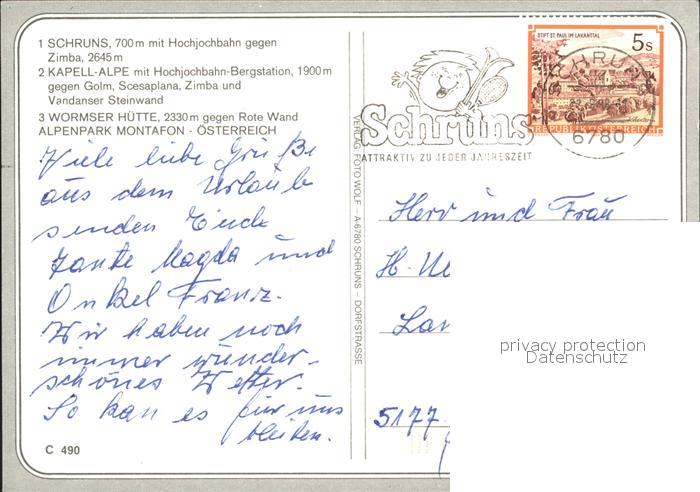 1 SCHRUNS, 700 m mit Hochjochbahn gegen
Zimba, 2645 m
2 KAPELL-ALPE mit Hochjochbahn-Bergstation, 1900 m
gegen Golm, Scesaplana, Zimba und
Vandanser Steinwand
3 WORMSER HÜTTE, 2330 m gegen Rote Wand
ALPENPARK MONTAFON - ÖSTERREICH
Viele liebe Grüße
aus dem Urlaub
senden Euch
Tante Magda und
Onkel Franz.
Wir haben noch
immer wunder-
schönes Wetter.
So kan es für uns
bleiben.
C 490
VERLAG: FOTO WOLF - A-6780 SCHRUNS - DORFSTRASSE
Schruns
ATTRAKTIV ZU JEDER JAHRESZEIT
STIFT ST. PAUL IM LAVANTTAL
5 S
REPUBLIK ÖSTERREICH
SCHRUNS
6780
Herr und Frau
H.
5177
privacy protection
Datenschutz